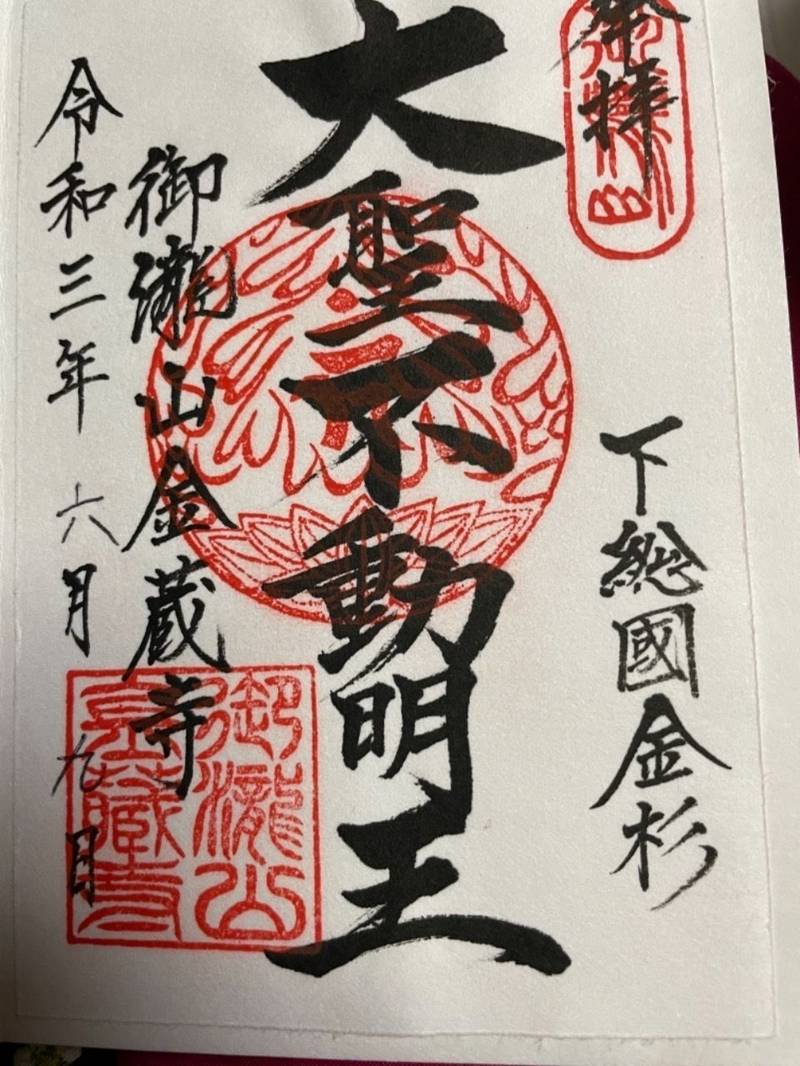 奉拝
下総國金杉
大聖不動明王
御瀧山金蔵寺
令和三年六月九日
御瀧山
金藏寺